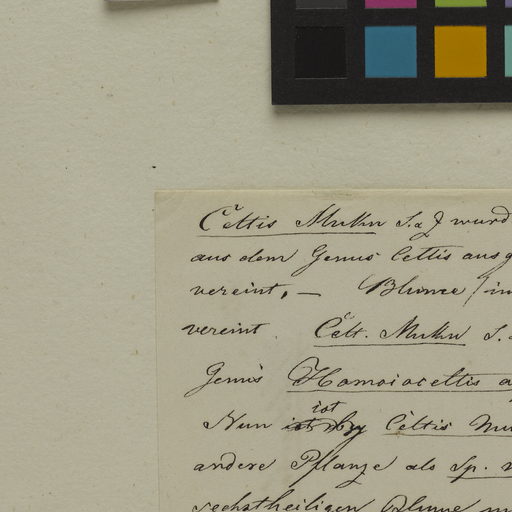 Celtis Muku S. a Z wurd
aus dem Genus Celtis aus g
vereint, — Blume / in
vereint. Celt. Muku S.
Genus Homoioceltis a
Nun ist Celtis Mu
andere Pflanze als Sp. n
sechstheiligen Blume m